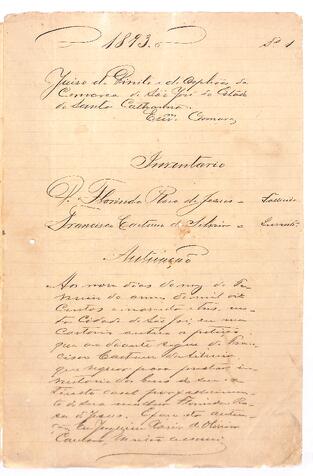 1893. Nº 1
Juizo de Direito e de Orphãos da
Comarca de São José do Estado
de Santa Catharina
Escrm Camara
Inventario
D. Florinda Rosa de Jesus = Fallecida
Francisco Caetano da Silveira = Inventte
Autuação
Aos nove dias do mez de
do anno de mil oito
centos e noventa e tres, nes
ta Cidade de São José, em meu
Cartorio autuei a petição
que ao deante segue de Fran
cisco Caetano da Silveira
que requer para prestar in
ventario dos bens de seu ex
tincto casal por fallecimen
to de sua mulher Florinda Ro
sa de Jesus. E faço esta autua
Eu Joaquim de Oliveira
Camara escrivi